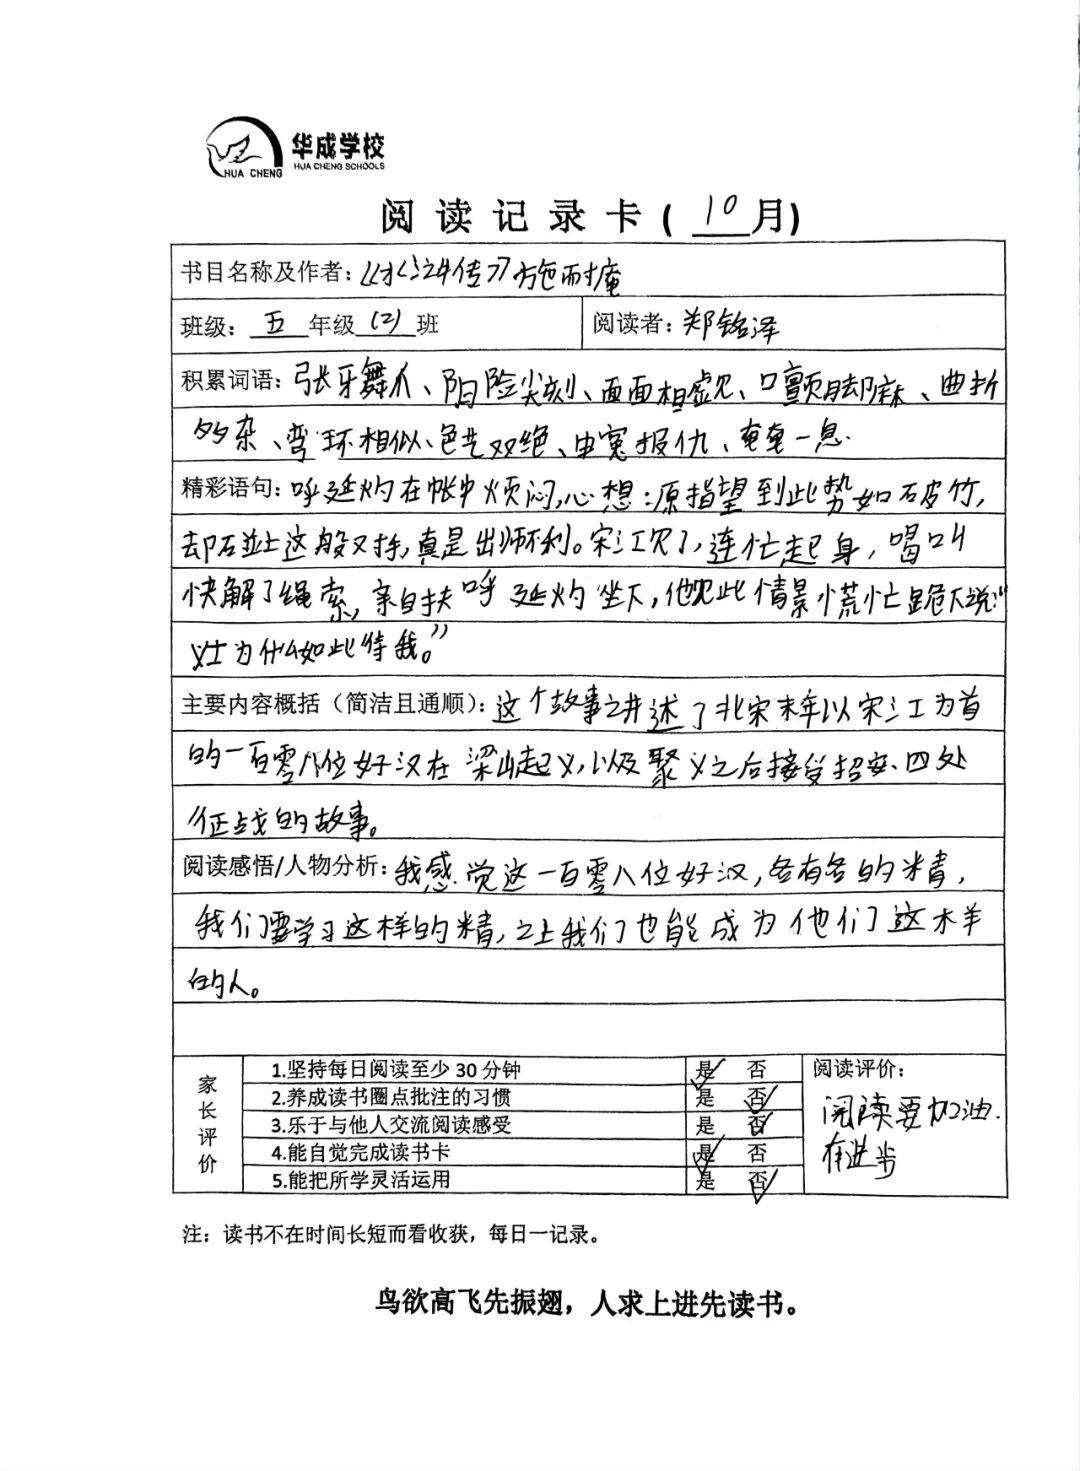 华成学校
HUA CHENG SCHOOLS
HUA CHENG
阅读记录卡(10月)
书目名称及作者:《水浒传》施耐庵
班级:五年级(2)班 阅读者:郑铭泽
积累词语:张牙舞爪、阴险尖刻、面面相觑、口颤脚麻、曲折
多杂、弯环相似、色艺双绝、申冤报仇、奄奄一息.
精彩语句:呼延灼在帐中烦闷,心想:原指望到此势如破竹,
却碰上这般对手,真是出师不利。宋江见了,连忙起身,喝叫
快解了绳索,亲自扶呼延灼坐下,他见此情景慌忙跪下说:“
义士为什么如此待我。”
主要内容概括(简洁且通顺):这个故事讲述了北宋末年以宋江为首
的一百零八位好汉在梁山起义,以及聚义之后接受招安、四处
征战的故事。
阅读感悟/人物分析:我感觉这一百零八位好汉,各有各的精,
我们要学习这样的精,让我们也能成为他们这样
的人。
家长评价
1.坚持每日阅读至少30分钟 是 否
2.养成读书圈点批注的习惯 是 否
3.乐于与他人交流阅读感受 是 否
4.能自觉完成读书卡 是 否
5.能把所学灵活运用 是 否
阅读评价:
阅读要加油.
有进步
注:读书不在时间长短而看收获,每日一记录。
鸟欲高飞先振翅,人求上进先读书。